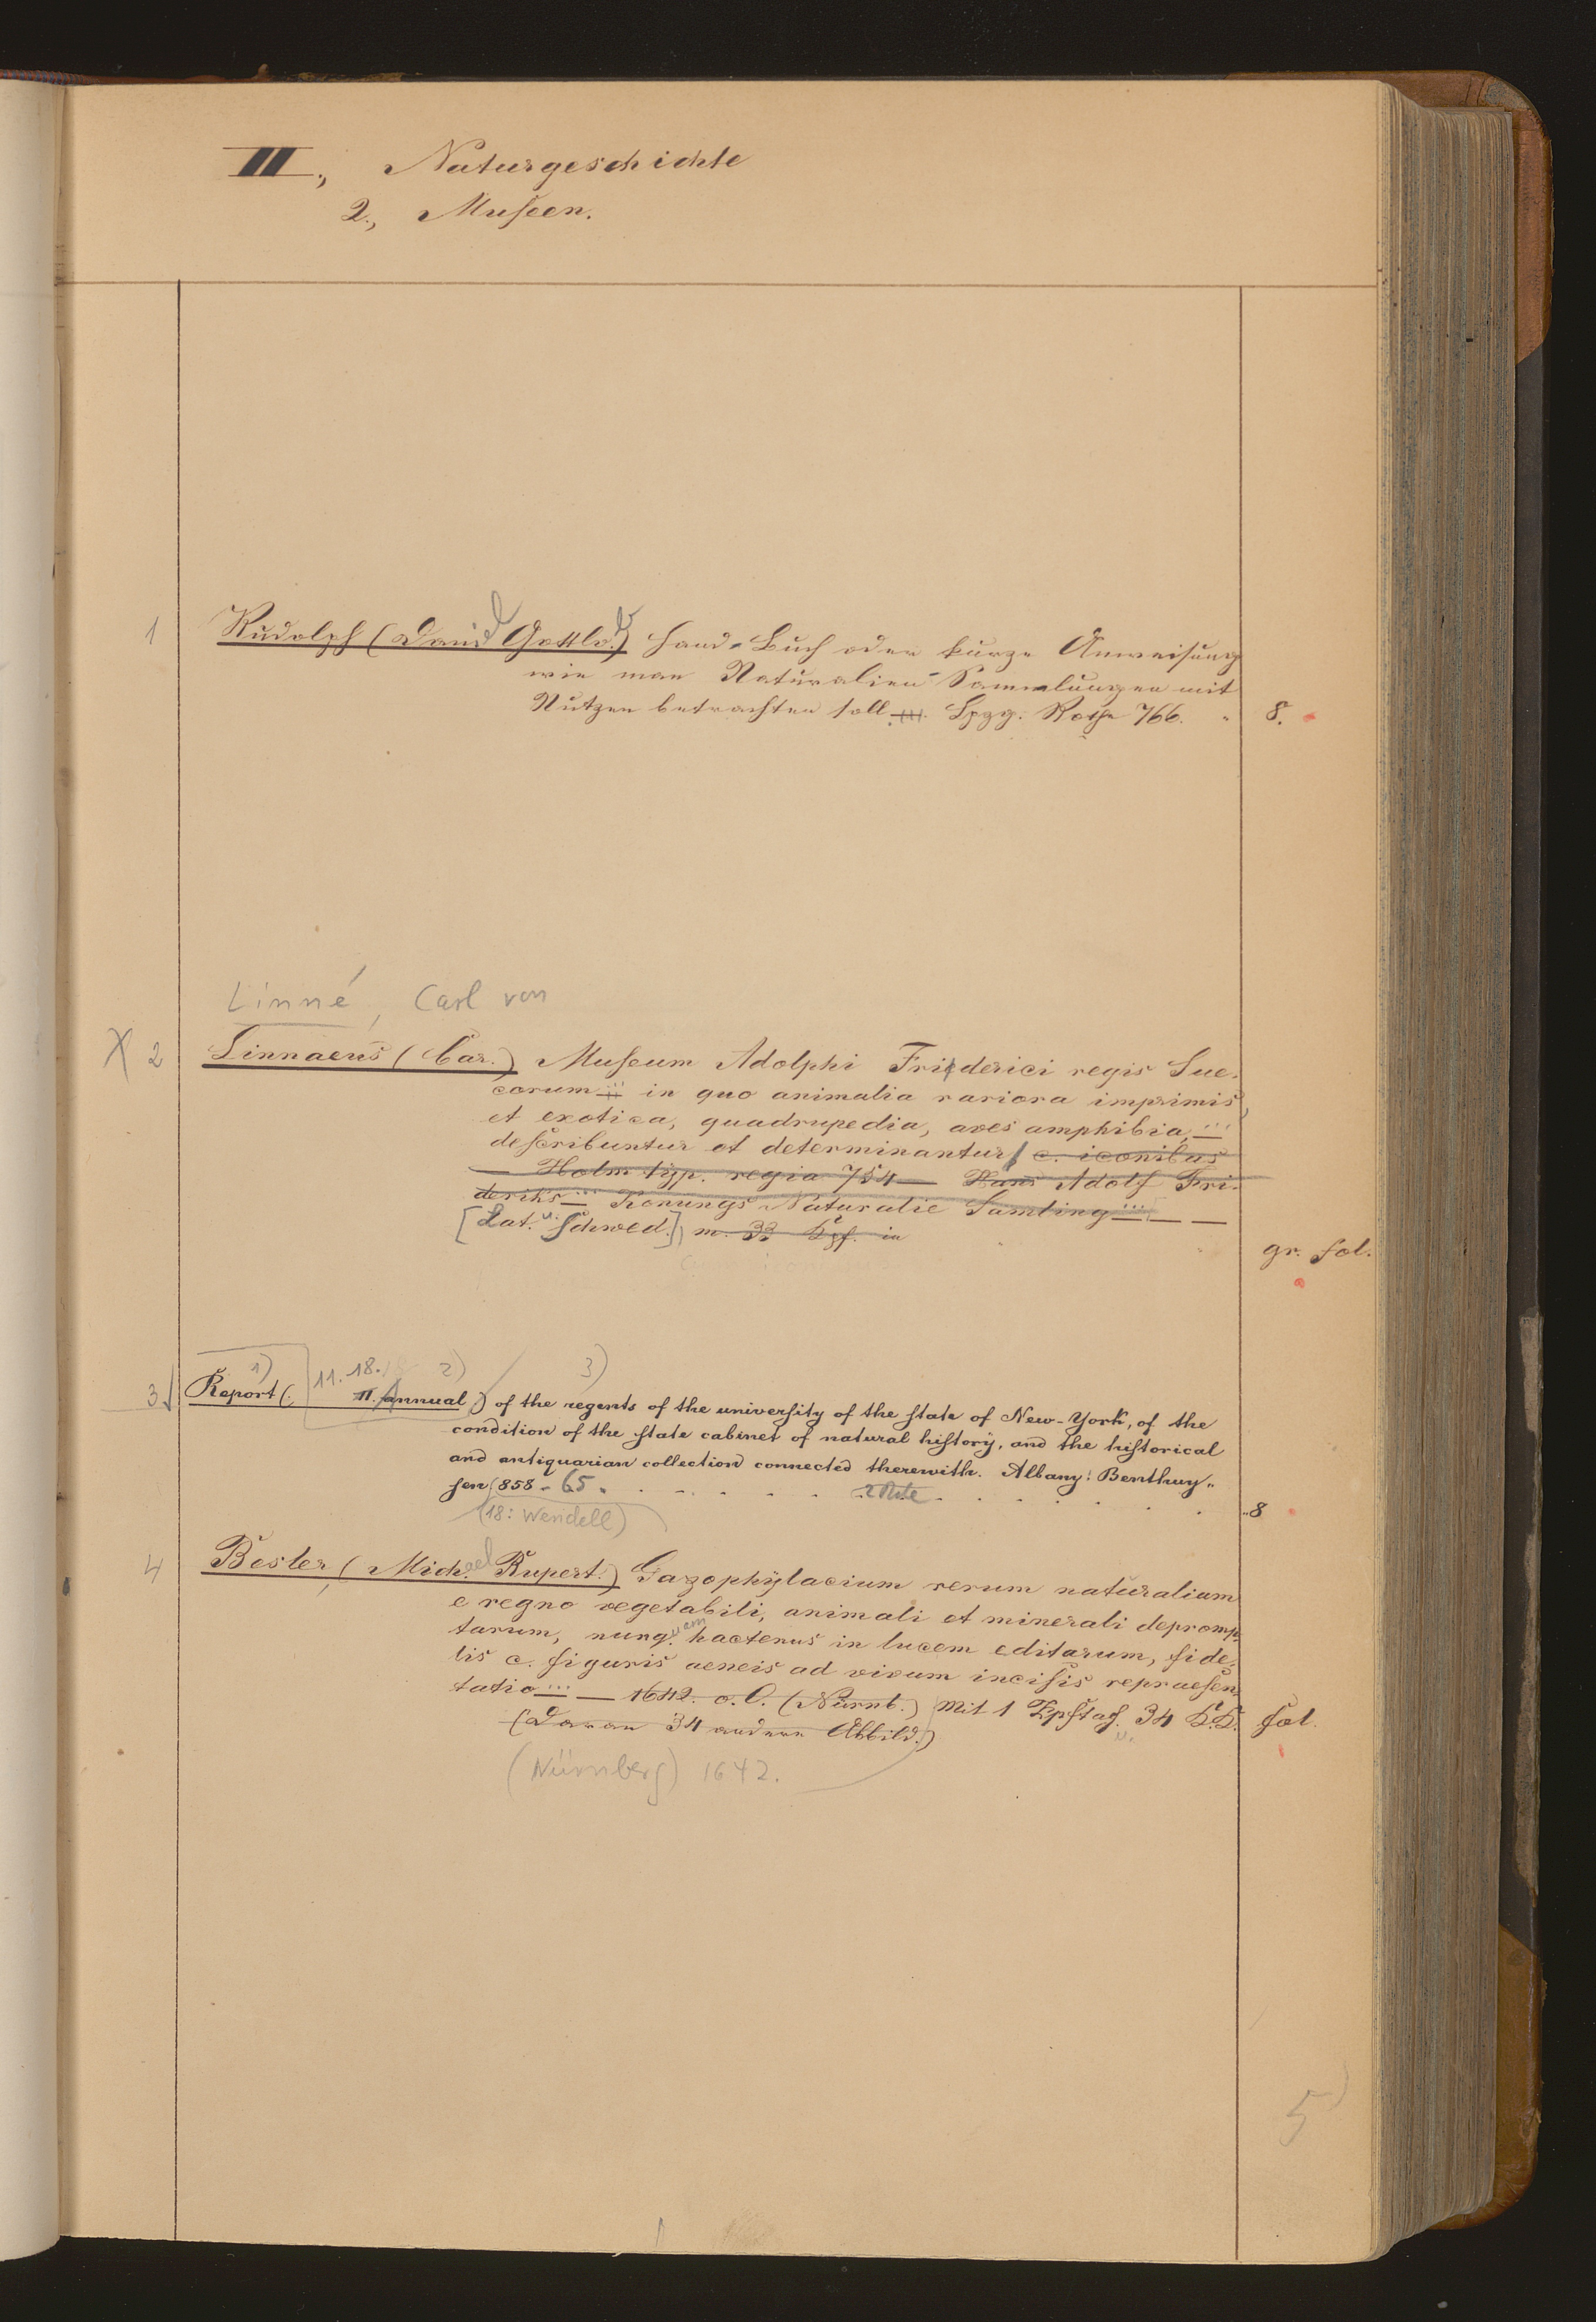 III., Naturgeschichte
2., Museen.
1 Rudolph (David Gottlob) Hand-Buch oder kurze Anweisung
wie man Naturalien-Sammlungen mit
Nutzen betrachten soll ... Lpzg. Rothe 766. 8.
Linné, Carl von
X 2 Linnaeus (Car.) Museum Adolphi Friderici regis Sue-
corum ... in quo animalia rariora imprimis,
et exotica, quadrupedia, aves amphibia, ...
describuntur et determinantur c. iconibus
— Holm typ. regia 754 — Hans Adolf Fri-
deriks ... Konungs Naturalie Samling ... — —
[Lat. u. Schwed.] m. 33 Kpf. in gr. fol.
1) 11. 18. 2) 3)
3 Report (II. annual) of the regents of the university of the state of New-York, of the
condition of the state cabinet of natural history, and the historical
and antiquarian collection connected therewith. Albany: Benthuy-
sen 858-65. 2 Bde 8
(18: Wendell)
4 Besler (Michael Rupert.) Gazophylacium rerum naturalium
e regno vegetabili, animali et minerali depromp-
tarum, nunquam hactenus in lucem editarum, fide-
lis c. figuris aeneis ad vivum incisis repraesen-
tatio ... — 1642. o. O. (Nürnb.) Mit 1 Kpftaf. u. 34 K.K. fol.
(Daran 34 andere Abbild.)
(Nürnberg) 1642.
5